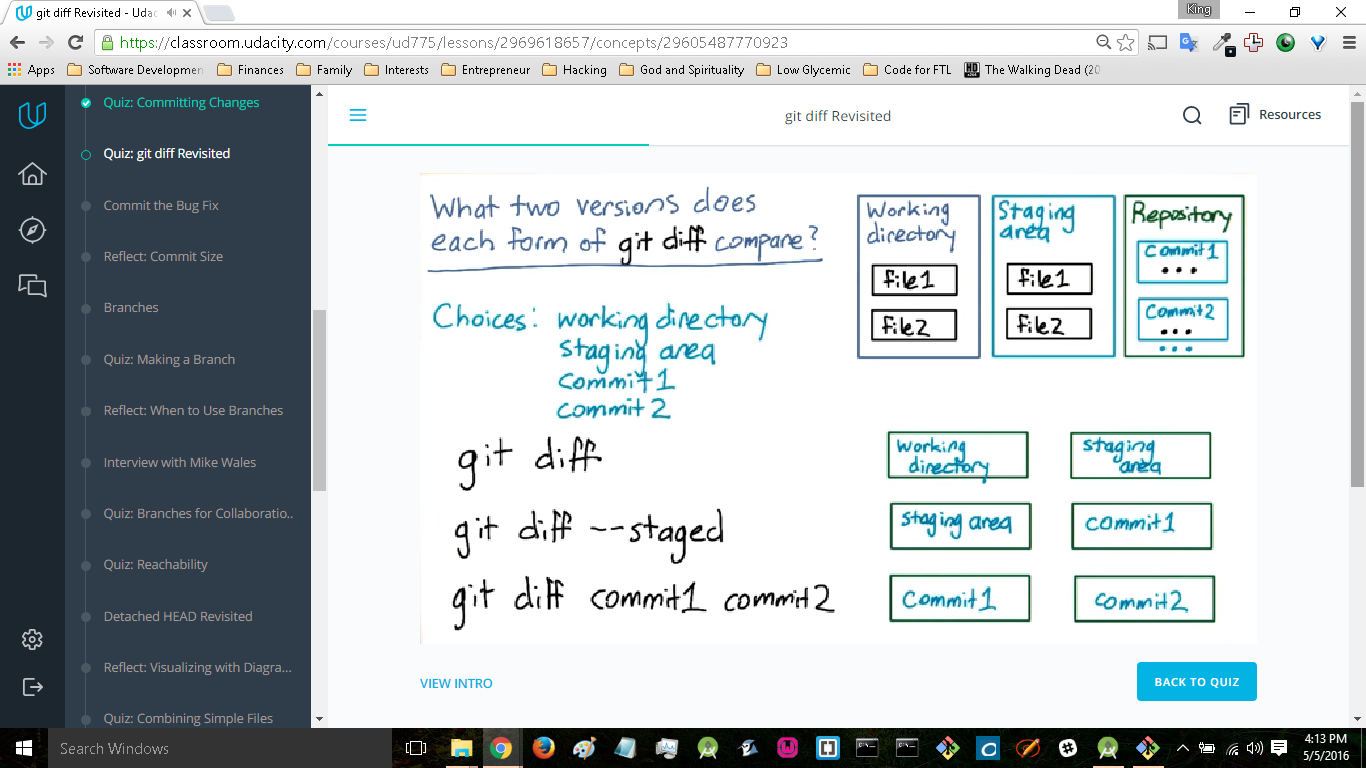 git diff Revisited - Udac
King
https://classroom.udacity.com/courses/ud775/lessons/2969618657/concepts/29605487770923
Apps Software Developmen Finances Family Interests Entrepreneur Hacking God and Spirituality Low Glycemic Code for FTL The Walking Dead (20
Quiz: Committing Changes
Quiz: git diff Revisited
Commit the Bug Fix
Reflect: Commit Size
Branches
Quiz: Making a Branch
Reflect: When to Use Branches
Interview with Mike Wales
Quiz: Branches for Collaboratio..
Quiz: Reachability
Detached HEAD Revisited
Reflect: Visualizing with Diagra...
Quiz: Combining Simple Files
git diff Revisited
Resources
What two versions does
each form of git diff compare?
Choices: working directory
staging area
commit1
commit2
Working
directory
file1
file2
Staging
area
file1
file2
Repository
commit1
...
commit2
...
...
git diff
working
directory
staging
area
git diff --staged
staging area
commit1
git diff commit1 commit2
commit1
commit2
VIEW INTRO
BACK TO QUIZ
Search Windows
4:13 PM
5/5/2016